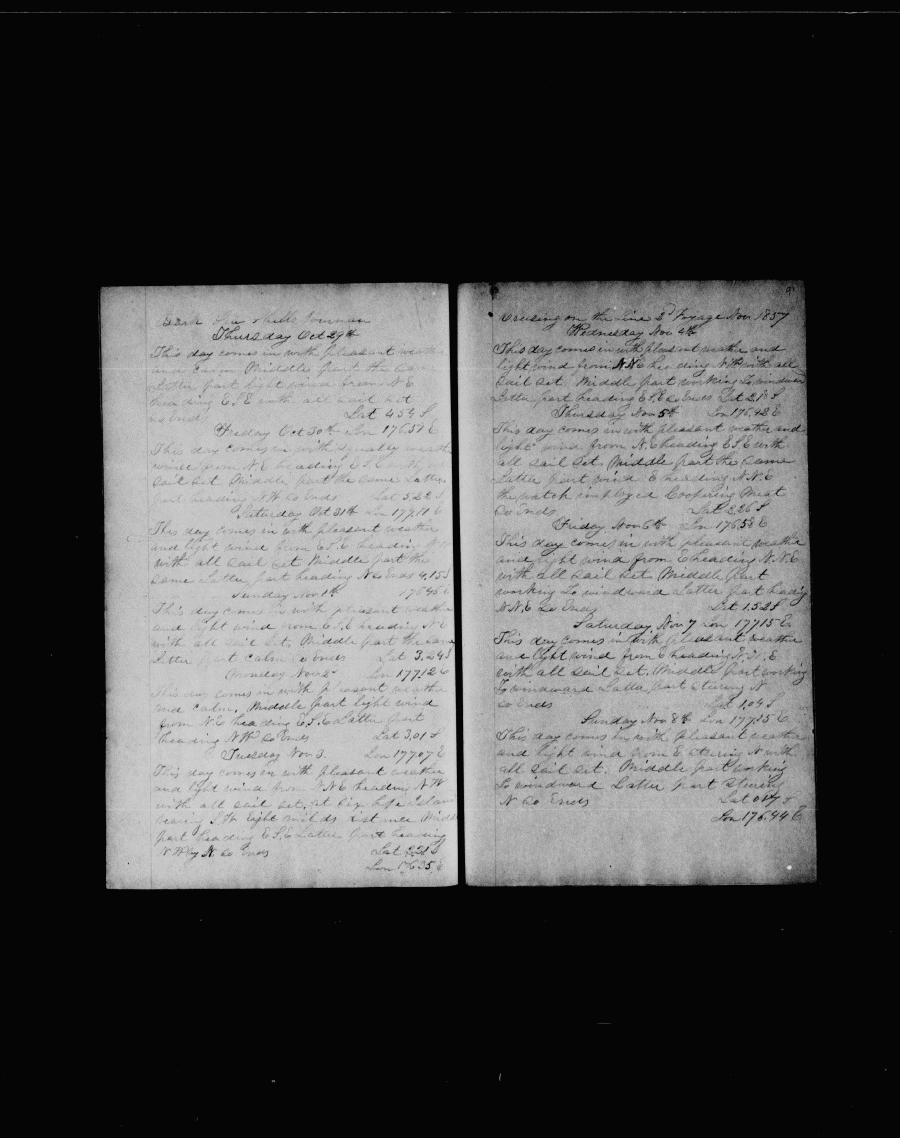 Thursday Oct 29th
This day comes in with pleasant weather
and calm Middle part the same
Latter part light wind from N E
heading E.S.E with all sail set
so Ends Lat 4 54 S
Friday Oct 30th Lon 176.58 E
This day comes in with squally weather
wind from N.E heading E S.E with all
sail set Middle part the same Latter
part heading N.W So Ends Lat 5.22 S
Saturday Oct 31th Lon 177.11 E
This day comes in with pleasant weather
and light wind from E.S.E heading N
with all sail set Middle part the
same Latter part heading N So Ends 4.15 S
Sunday Nov 1th 176 45 E
This day comes in with pleasant weather
and light wind from E.S.E heading N E
with all sail set. Middle part the same
Latter part calm So Ends Lat 3.24 S
Monday Nov 2 Lon 177.12 E
This day comes in with pleasant weather
and calm. Middle part light wind
from N.E heading E.S.E Latter part
heading N W So Ends Lat 3.01 S
Tuesday Nov 3. Lon 177.07 E
This day comes in with pleasant weather
and light wind from N N E heading N.W
with all sail set. at Six
bearing Eight distance Middle
part heading E S.E Latter part heading
N.W by N So Ends Lat 2.21 S
Lon 176.35 E
Cruising on the Line 3d Voyage Nov 1857
Wednesday Nov 4th
This day comes in with pleasant weather and
light wind from N.N.E heading N.W with all
sail set Middle part working To windward
Latter part heading E.S.E So Ends Lat 2.18 S
Thursday Nov 5th Lon 176.42 E
This day comes in with pleasant weather and
light wind from N.E heading E S.E with
all sail set. Middle part the same
Latter part wind E heading N.N.E
the watch employed Coopering Meat
So Ends Lat 2.26 S
Friday Nov 6th Lon 176.58 E
This day comes in with pleasant weather
and light wind from E heading N.N.E
with all sail set Middle part
working To windward Latter part heading
N.N.E So Ends Lat 1.52 S
Saturday Nov 7 Lon 177.15 E
This day comes in with pleasant weather
and light wind from E heading N.N.E
with all sail set. Middle part working
To windward Latter part steering N
So Ends Lat 1.04 S
Sunday Nov 8th Lon 177.35 E
This day comes in with pleasant weather
and light wind from E steering N with
all sail set. Middle part working
To windward Latter part steering
N So Ends Lat 0 17 S
Lon 176.44 E